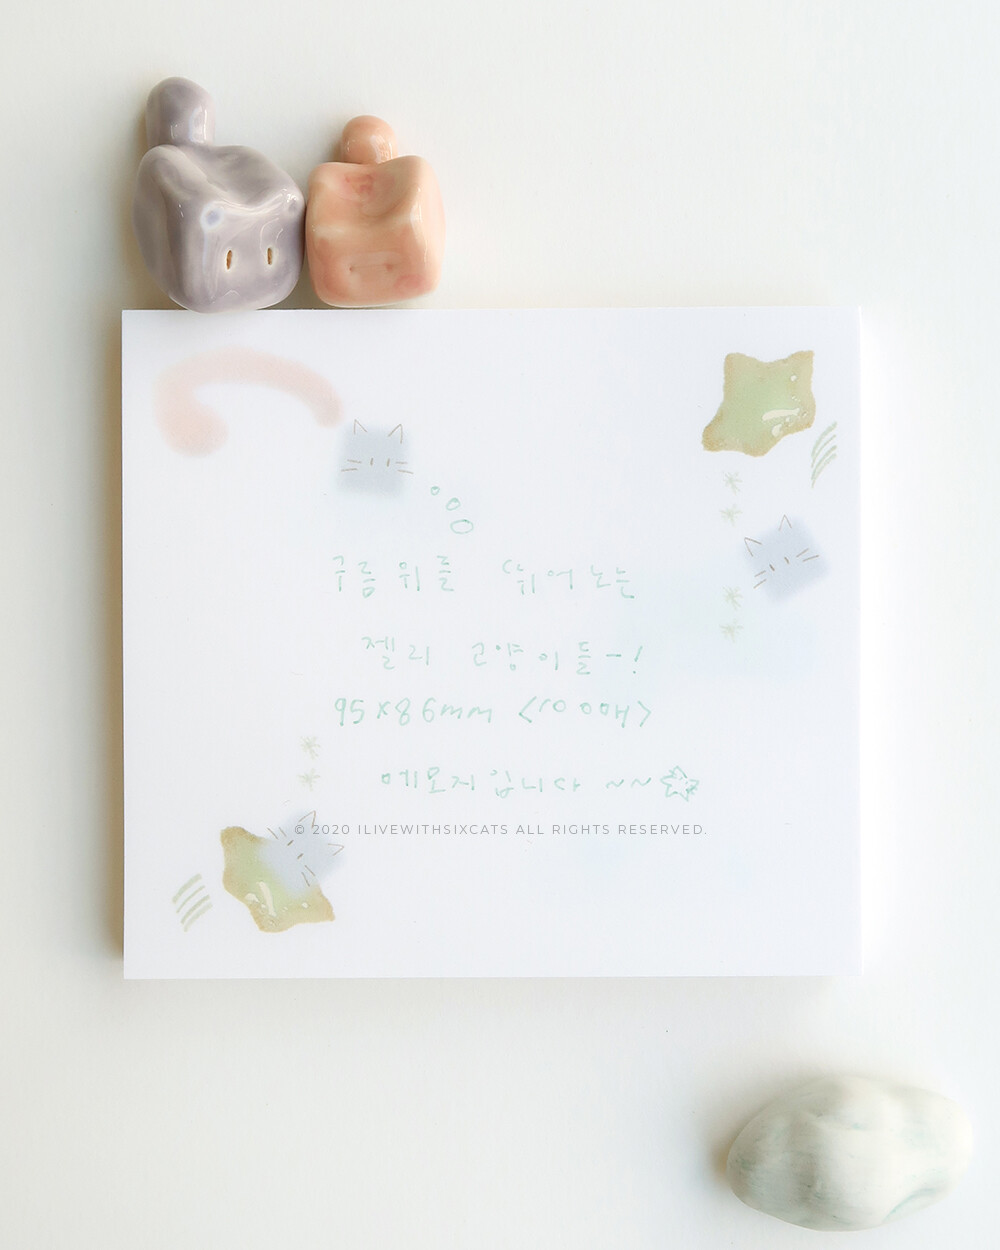 구름 위를 뛰어 노는
젤리 고양이들-!
95x86mm <100매>
메모지입니다 ~~
© 2020 ILIVEWITHSIXCATS ALL RIGHTS RESERVED.